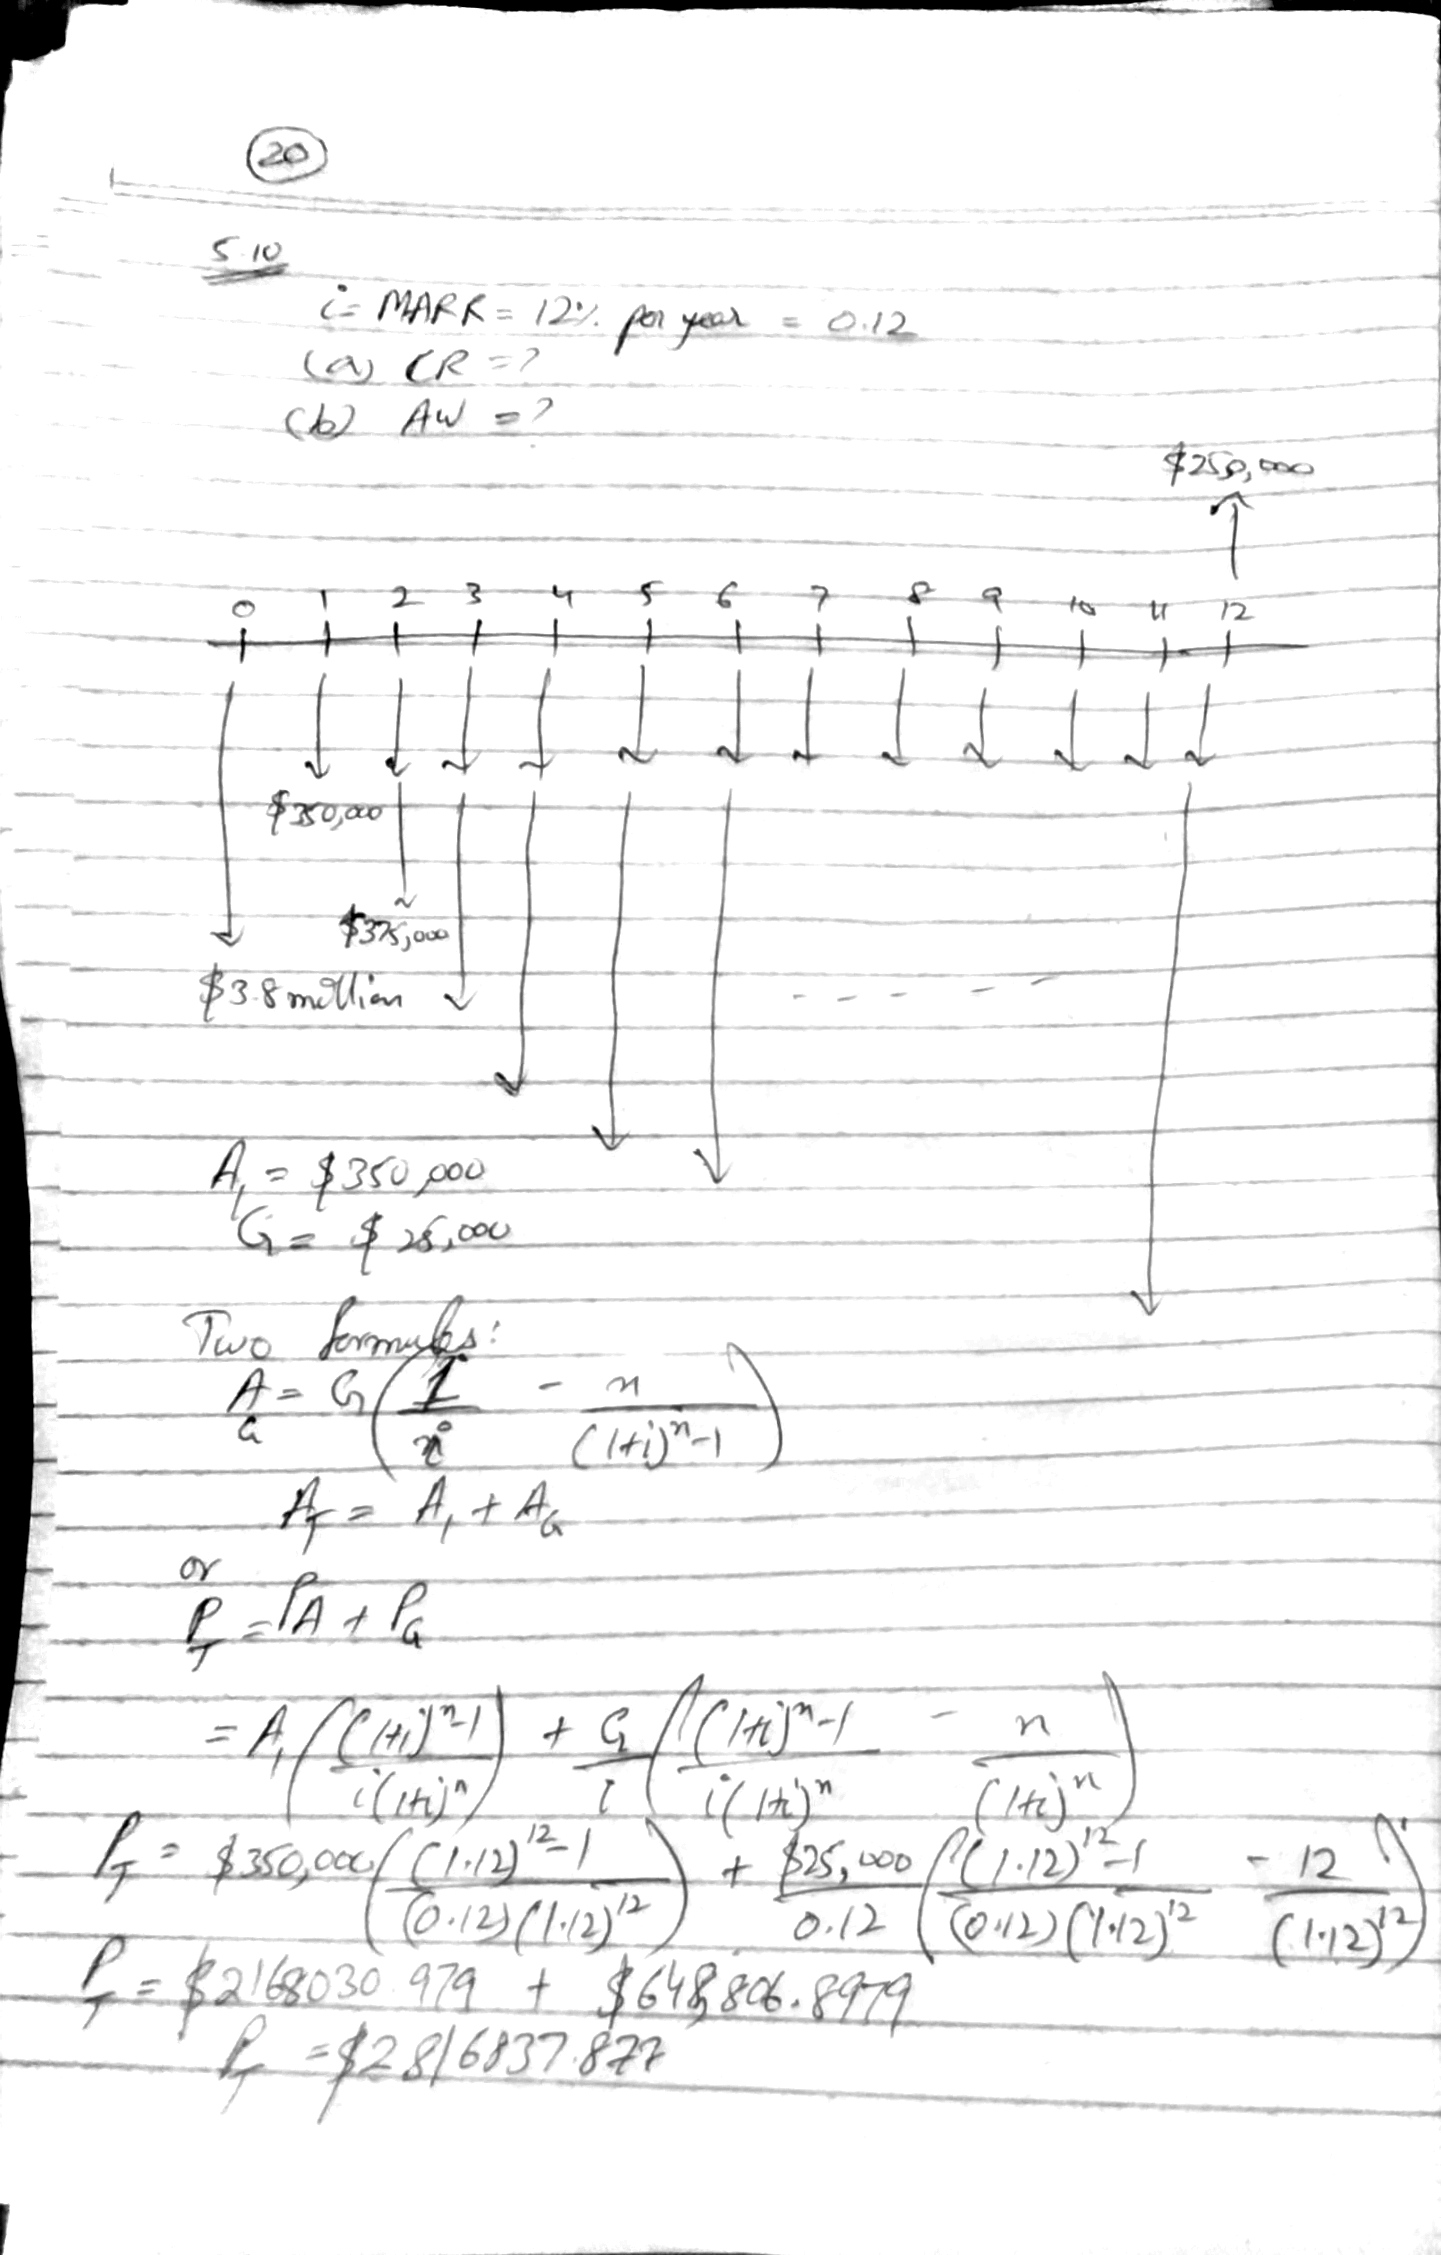 20
5.10
i = MARR = 12% per year = 0.12
(a) CR = ?
(b) AW = ?
$250,000
0 1 2 3 4 5 6 7 8 9 10 11 12
$350,000
$375,000
$3.8 million
A₁ = $350,000
G = $25,000
Two formulas:
A_G = G(1/i - n/((1+i)ⁿ-1))
A_T = A₁ + A_G
or
P_T = P_A + P_G
= A₁(((1+i)ⁿ-1)/(i(1+i)ⁿ)) + G/i(((1+i)ⁿ-1)/(i(1+i)ⁿ) - n/(1+i)ⁿ)
P_T = $350,000(((1.12)¹²-1)/((0.12)(1.12)¹²)) + $25,000/0.12(((1.12)¹²-1)/((0.12)(1.12)¹²) - 12/(1.12)¹²)
P_T = $2168030.979 + $648,806.8979
P_T = $2816837.877